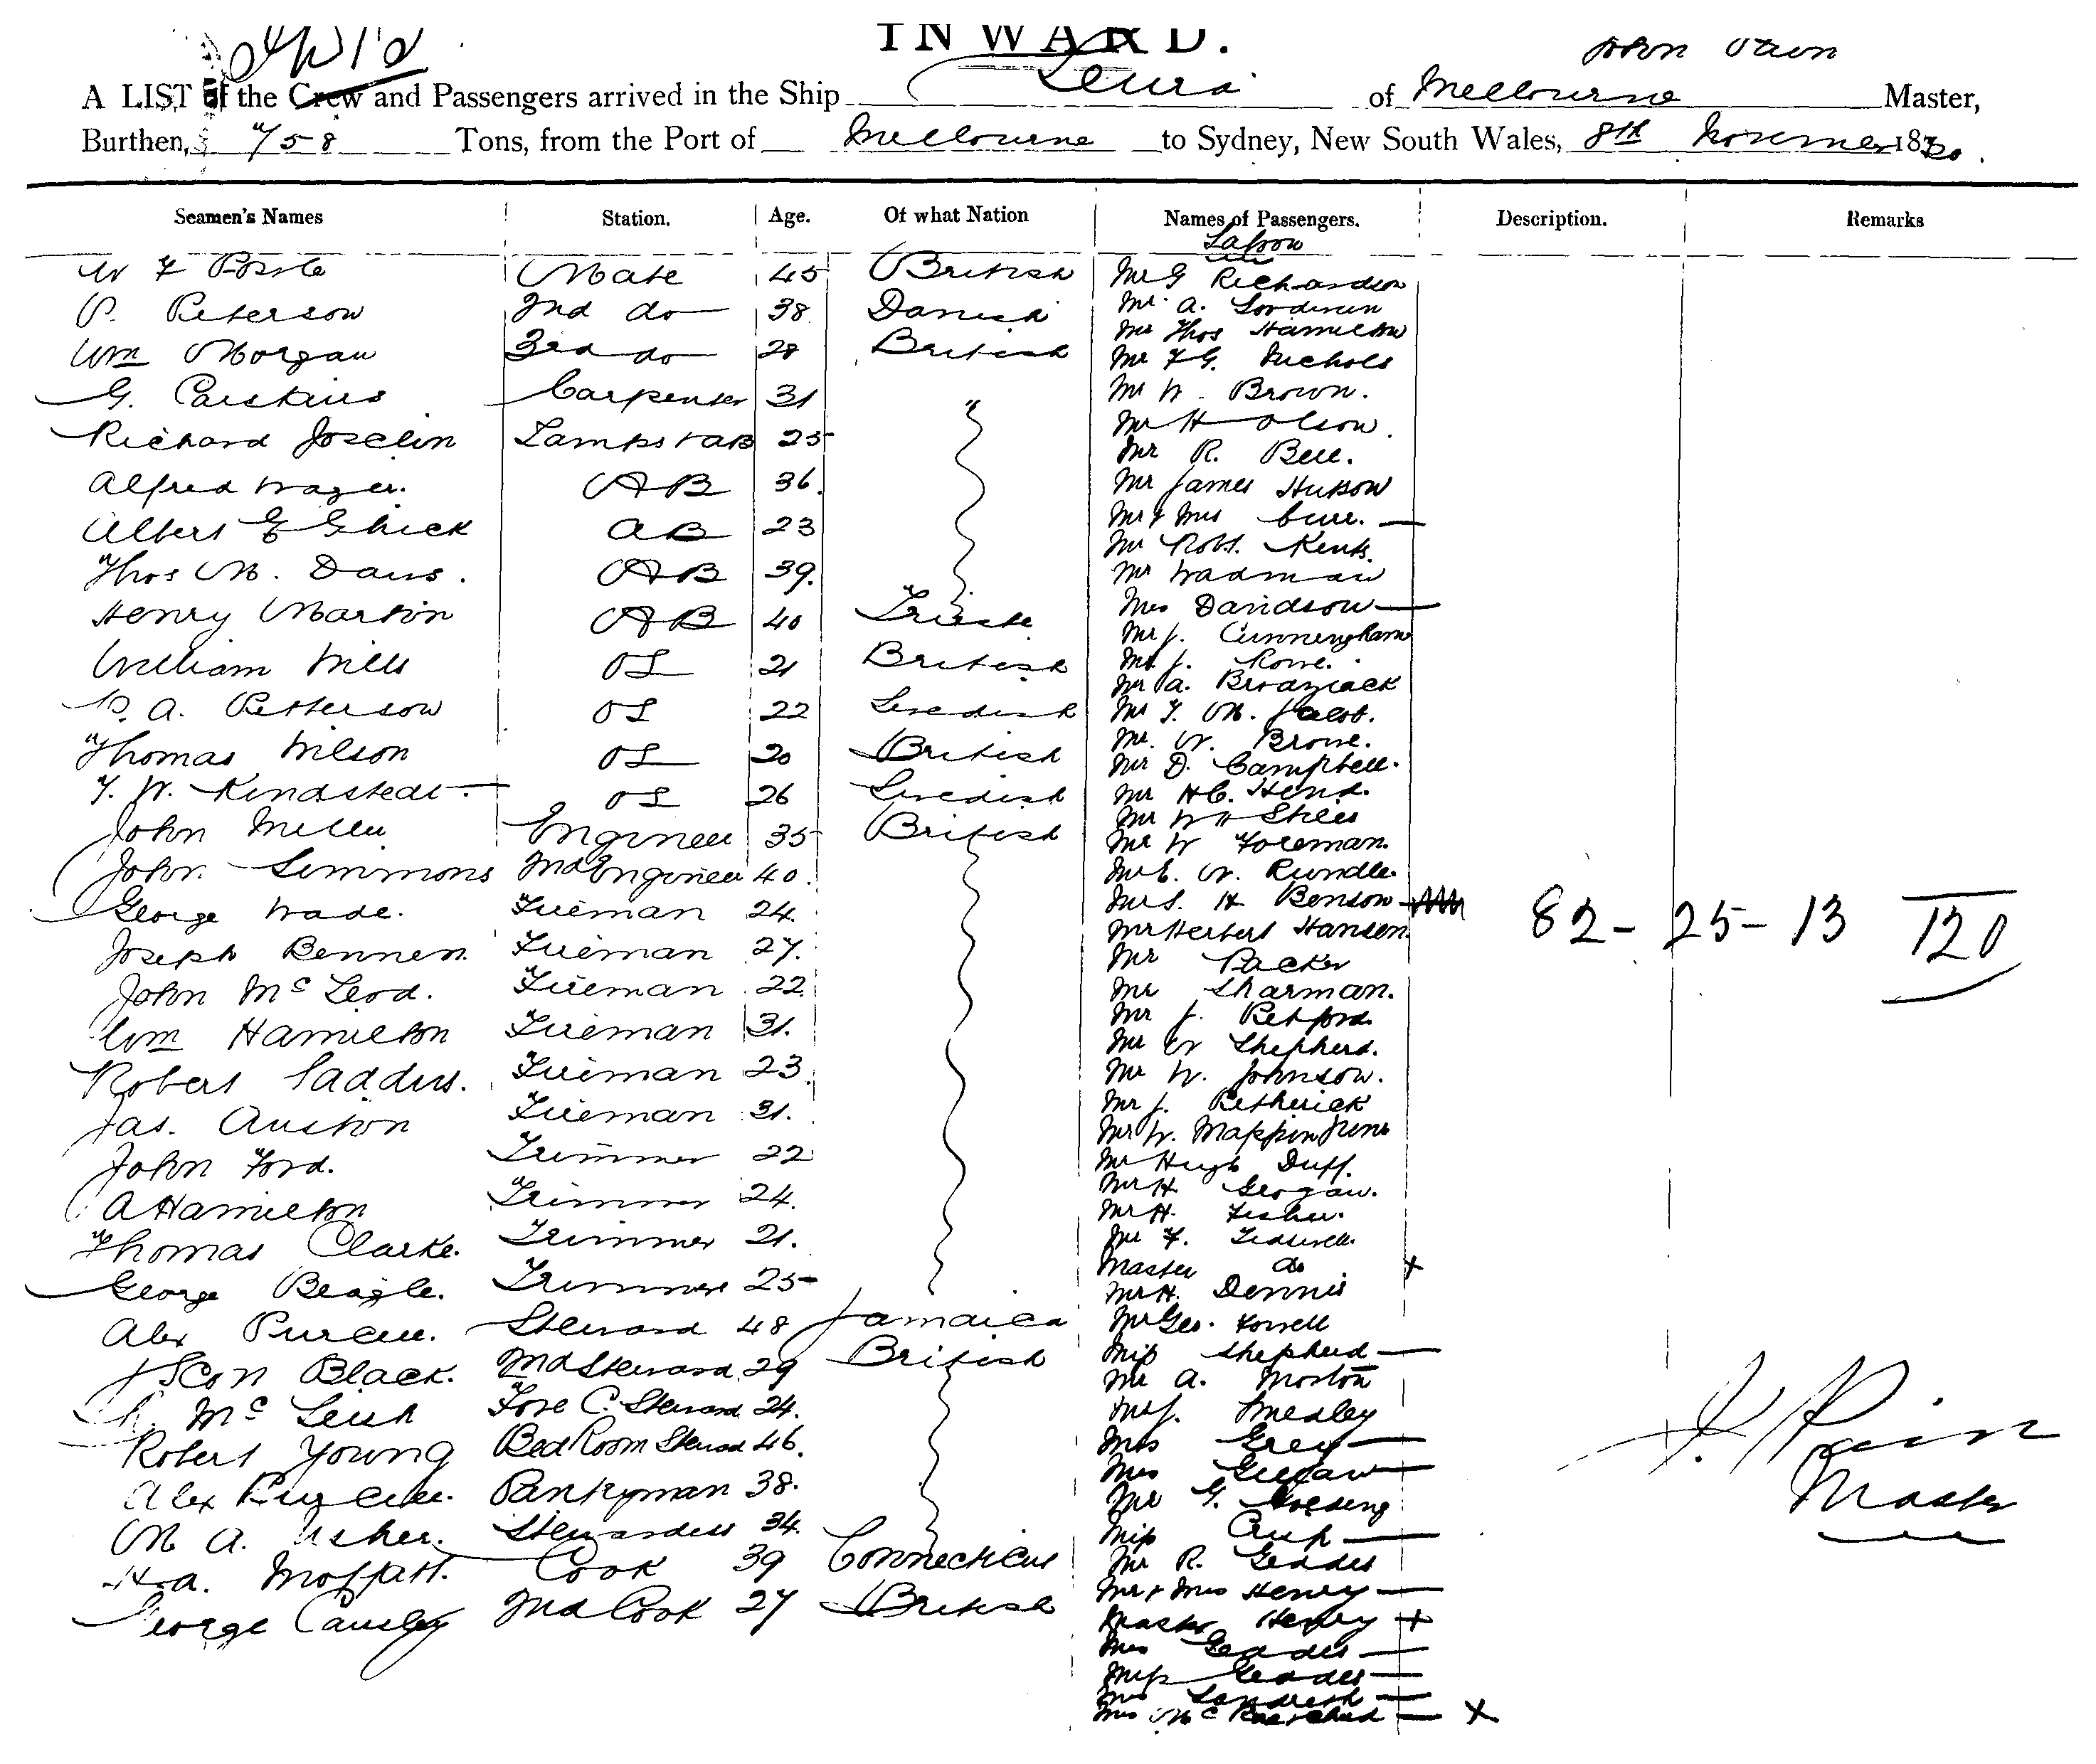 INWARD.
A LIST of the Crew and Passengers arrived in the Ship Leura of Melbourne John Pain Master,
Burthen, Tons, from the Port of Melbourne to Sydney, New South Wales, 8th November 18
Seamen's Names Station. Age. Of what Nation Names of Passengers. Description. Remarks
Saloon
W F Mate 45 British Mr G Richardson
P. Peterson 2nd do 38 Danish Mr A.
Mr Thos Hamilton
Wm Morgan 3rd do 28 British Mr F G. Nichols
G. Carpenter 31 " Mr W. Brown.
Richard Joselin Lamps & AB 25 Mr H Olson.
Mr R. Bell.
Alfred Wager. AB 36. Mr James Hutson
Albert E Ghick AB 23 Mr & Mrs —
Mr Robt. Kent.
Thos M. Davis. AB 39. Mr Wadman
Henry Martin AB 40 Mrs Davidson —
Mr J. Cunningham
William Mills OS 21 British Mr J. Rowe.
Mr A. Brodziack
P. A. Petterson OS 22 Swedish Mr F. M. Jacob.
Thomas Wilson OS 20 British Mr. W. Browne.
Mr D. Campbell.
F. W. Kindstedt OS 26 Swedish Mr H C. Hend.
John Miller Engineer 35 British Mr W H Stiles
Mr W Foreman.
John Simmons 2nd Engineer 40. Mr E. W. Rundle.
George Wade. Fireman 24. Mr S. H. Benson
Mr Herbert Hansen.
82 - 25 - 13 120
Joseph Bennett Fireman 27. Mr Packer
John McLeod. Fireman 22. Mr Sharman.
Mr J. Petford.
Wm Hamilton Fireman 31. Mr W Shepherd.
Robert Saddus. Fireman 23. Mr W. Johnson.
Jas. Auston Fireman 31. Mr J. Petherick
Mr W. Mappin Junr
John Ford. Trimmer 22 Mr Hugh Duff.
A Hamilton Trimmer 24. Mr H. Geogan.
Mr H. Fisher.
Thomas Clarke. Trimmer 21. Mr F. Tidswell.
Master do x
George Beagle. Trimmer 25 Mr H. Dennis
Alex Purcell. Steward 48 Jamaica Mr Geo. Forrell
J Scott Black. 2nd Steward 29 British Miss Shepherd —
Mr A. Morton
McLeish Fore C. Steward 24. Mr J. Smedley
Robert Young Bed Room Steward 46. Mrs Grey —
Mrs —
Alex Purcell. Pantryman 38. Mr G. Golding
M A. Usher. Stewardess 34. Miss —
H. A. Moffatt. Cook 39 Connecticut Mr R. Geddes
George Causley 2nd Cook 27 British Mr & Mrs Henry —
Master Henry +
Mrs Geddes —
Miss Geddes —
Mrs —
Mrs — x
J. Pain
Master